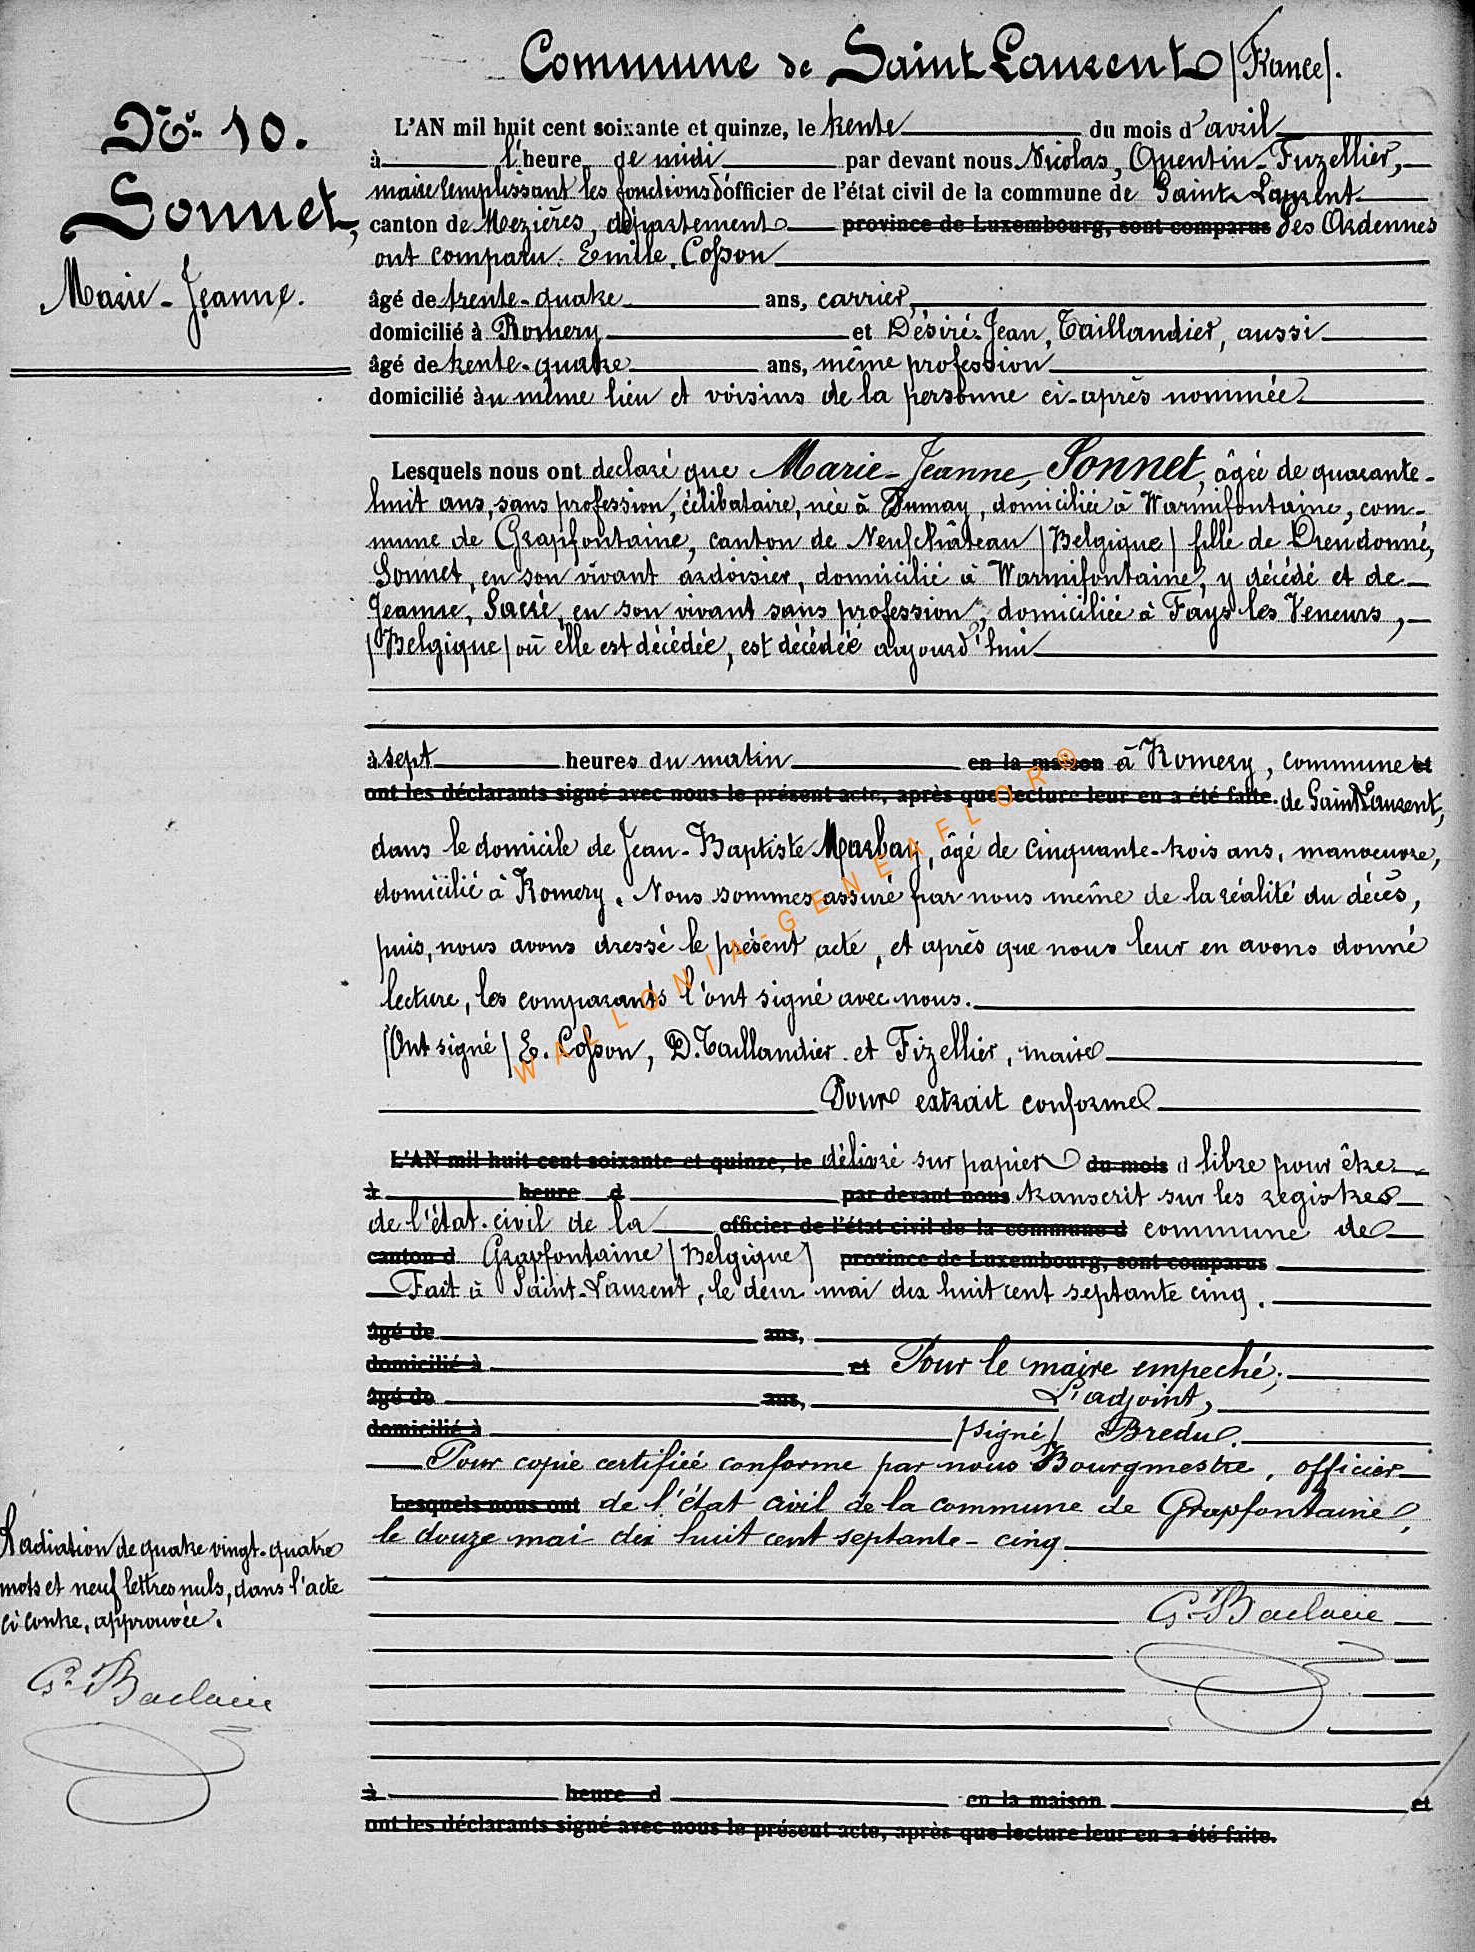 Commune de Saint Laurent (France).
N° 10.
Sonnet,
Marie-Jeanne.
L'AN mil huit cent soixante et quinze, le trente du mois d'avril
à l'heure de midi par devant nous Nicolas, Quentin Fuzellier,
maire remplissant les fonctions d'officier de l'état civil de la commune de Saint-Laurent
canton de Mezières, département province de Luxembourg, sont comparus des Ardennes
ont comparu. Emile. Cosson
âgé de trente-quatre ans, carrier,
domicilié à Romery et Désiré-Jean, Taillandier, aussi
âgé de trente-quatre ans, même profession
domicilié àu même lieu et voisins de la personne ci-après nommée
Lesquels nous ont declaré que Marie-Jeanne, Sonnet, âgée de quarante-
huit ans, sans profession, célibataire, née à Fumay, domiciliée à Warmifontaine, com-
mune de Grapfontaine, canton de Neufchâteau (Belgique) fille de Dieudonné,
Sonnet, en son vivant ardoisier, domicilié à Warmifontaine, y décédé et de
Jeanne, Sacré, en son vivant sans profession, domiciliée à Fays les Veneurs,
(Belgique) où elle est décédée, est décédée aujourd'hui
à sept heures du matin en la maison à Romery, commune et
ont les déclarants signé avec nous le présent acte, après que lecture leur en a été faite. de Saint Laurent,
dans le domicile de Jean-Baptiste Marbay, âgé de cinquante-trois ans, manoeuvre,
domicilié à Romery. Nous sommes assuré par nous même de la réalité du décès,
puis, nous avons dressé le présent acte, et après que nous leur en avons donné
lecture, les comparants l'ont signé avec nous.
(Ont signé) E. Cosson, D. Taillandier et Fizellier, maire
Pour extrait conforme
L'AN mil huit cent soixante et quinze, le délivré sur papier du mois d libre pour être
à heure d par devant nous transcrit sur les registres
de l'état-civil de la officier de l'état civil de la commune d commune de
canton d Grapfontaine (Belgique) province de Luxembourg, sont comparus
Fait à Saint-Laurent, le deux mai dix huit cent septante cinq.
âgé de ans,
domicilié à et Pour le maire empeché,
âgé de ans, L'adjoint,
domicilié à (signé) Bredu.
Pour copie certifiée conforme par nous Bourgmestre, officier
Lesquels nous ont de l'état civil de la commune de Grapfontaine,
le douze mai dix huit cent septante-cinq
Radiation de quatre vingt-quatre
mots et neuf lettres nuls, dans l'acte
ci contre, approuvée.
à heure d en la maison et
ont les déclarants signé avec nous le présent acte, après que lecture leur en a été faite.
WALLONIA-GENEAFLOR®